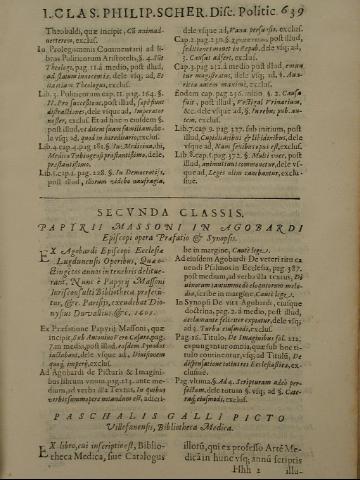 I. CLAS. PHILIP. SCHER. Disc. Politic. 639
Theobaldi, quæ incipit, Cū animad-
verterem, exclus.
In Prolegomenis Commentarii ad li-
bros Politicorum Aristotelis, §. 4. Sic
Theolog. pag. 11. d medio, post illud,
ad statum innocentiæ, dele vsq; ad, Et
etiamsi Theologus, exclus.
Lib. 3. Politicorum cap. 11. pag. 164. §.
II. Pro successione, post illud, sæpè sunt
distractiones, dele vsque ad, Imperator
asser, exclus. Et ad hoc in eodem §.
post illud, et idem suum familiam, de-
le vsq; ad, quod in aureliano, exclus.
Lib. 4. cap. 4. pag. 181. §. In Medicina, ibi,
Medico Tubingensi prostantissimo, dele,
prostantissimo.
Lib. 5. cap. 1. pag. 228. §. In Democratiis,
post illud, illorum odio ac naufragia,
dele vsque ad, Vana persuasio, exclus.
Cap. 2. pag. 230. §. post illud,
seditiones movit in Repub. dele vsq; ad,
3. Causas adfert, exclus.
Cap. 3. pag 232. à medio post illud,
tur magistratus, dele vsq; ad, 2. Au-
ritia autem maximi, exclus.
Eodem cap. pag 236. initio §. 2. Causa
fuit, post illud, Vectigal Urinarium,
&c. dele vsque ad, §. Insuper pub. ad,
exclus.
Lib. 7. cap. 9. pag. 327. sub initium, post
illud, Capitulantibus & libidinibus, dele
vsque ad, Nam senibus opus est, exclus.
Lib. 8. cap. 6. pag. 372. §. Multi vero, post
illud, animantium commonetur, dele vs-
que ad, Leges olim cavebant, exclu-
sive.
SECVNDA CLASSIS.
PAPYRII MASSONI IN AGOBARDI
Episcopi opera Præfatio & Synopsis.
EX Agobardi Episcopi Ecclesiæ
Lugdunensis Operibus, Qua-
dringentos annos in tenebris delitue-
rant, Nunc è Papyrij Massoni
Iurisconsulti Bibliotheca profectu-
tur, &c. Parisijs, excudebat Dio-
nysius Duvallius &c. 1605.
Ex Præfatione Papyrij Massoni, quæ
incipit, Sub Antonino Pio Cæsare, pag.
7. in medio, post illud, eisdem Episodis
iactabant, dele vsque ad, Divisionem
quoq; imperij, exclus.
Ad Agobardi de Picturis & Imagini-
bus librum vnum, pag. 214. ante me-
dium, ad verba illa Textus, In quibus
verbis summopere intuendum est, adscri-
be in margine, Cautè lege.
Ad eiusdem Agobardi De veteri ritu ca-
nendi Psalmos in Ecclesia, pag. 387.
post medium, ad verba illa textus, Di-
vinorum tantummodo eloquiorum melo-
dia, scribe in margine, Cautè lege.
In Synopsi De vita Agobardi, eiusque
doctrina, pag. 2. à medio, post illud,
declarante feliciter expeditur, dele vsq;
ad 3. Turba eiusmodi, exclus.
Pag. 16. Titulo, De Imaginibus fol. 212,
expungatur omnia, quæ sub hoc ti-
tulo continentur, vsq; ad Titulū, De
dispensatione totius rei Ecclesiasticæ, ex-
clusivè.
Pag vltima §. Ad 4. Scripturam adeo per-
fectam, dele totum §. vsq; ad §. Cæte-
raq; eiusmodi, exclus.
PASCHALIS GALLI PICTO
Villefanensis, Bibliotheca Medica.
EX libro, cui inscriptio est, Biblio-
theca Medica, sive Catalogus
illorū, qui ex professo Artē Me-
dicā in hunc vsq; annū scriptis
Hhh 2 illu-